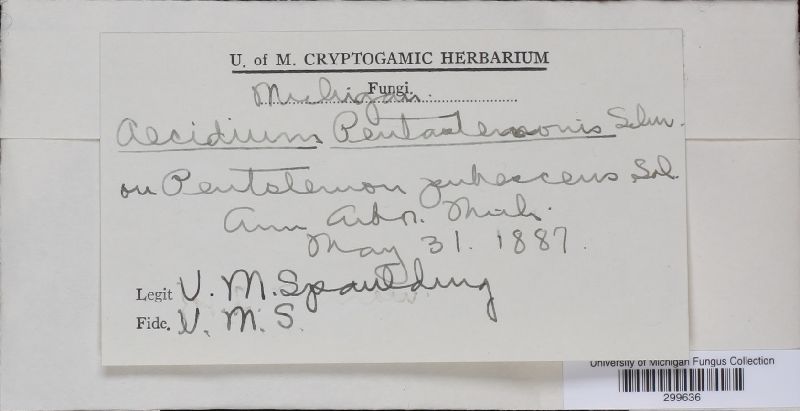 U. of M. CRYPTOGAMIC HERBARIUM
Fungi.
Michigan
Aecidium Pentastemonis Schw.
on Pentstemon pubescens Sol.
Ann Arbor. Mich.
May 31. 1887.
Legit V. M. Spaulding
Fide. V. M. S.
University of Michigan Fungus Collection
299636